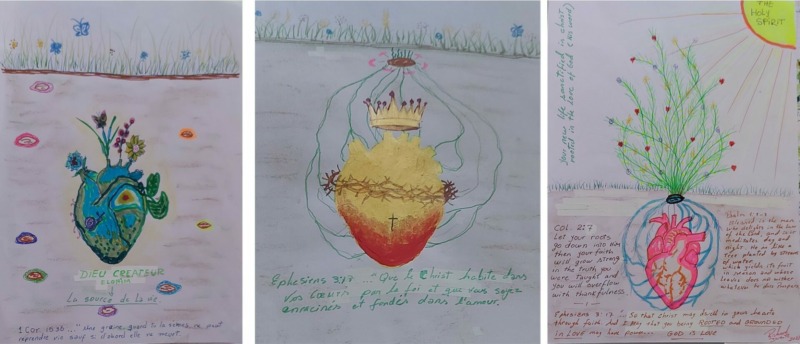 DIEU CREATEUR
ELOHIM
La source de la vie.
1 Cor. 15:36 ..." Une graine, quand tu la sèmes, ne peut
reprendre vie sauf si d'abord elle
Ephesiens 3:17 ..." Que le Christ habite dans
vos cœurs par la foi et que vous soyez
enracinés et fondés dans l'amour.
THE
HOLY
SPIRIT
Your new life sanctified in christ
rooted in the love of God (His word)
COL. 2:7
Let your roots
go down into Him
then your faith
will grow strong
in the truth you
were taught and
you will overflow
with thankfulness.
Psalm 1:1-3
Blessed is the man
who delights in the law
of the Lord and who
meditates day and
night. He is like a
tree planted by streams
of water
which yields its fruit
in season and whose
leaves does not wither
whatever he does prospers
Ephesians 3:17 ... So that Christ may dwell in your hearts
through faith. And I pray that you being ROOTED and GROUNDED
in Love may have power... GOD IS LOVE